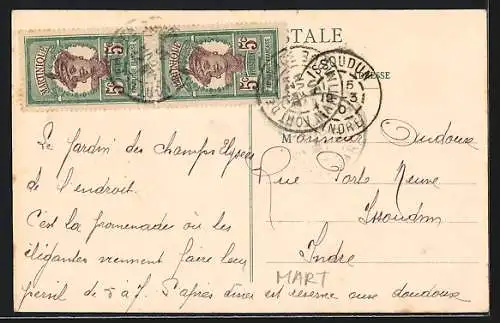 MARTINIQUE 5c
MARTINIQUE 5c
POSTALE
ISSOUDUN
INDRE
ADRESSE
Le Jardin des Champs Elysées
de l'endroit.
C'est la promenade où les
élégantes viennent faire leur
persil de 5 à 7. L'après diner est réservé aux doudoux
Monsieur Oudoux
Rue Porte Neuve
Issoudun
Indre
MART